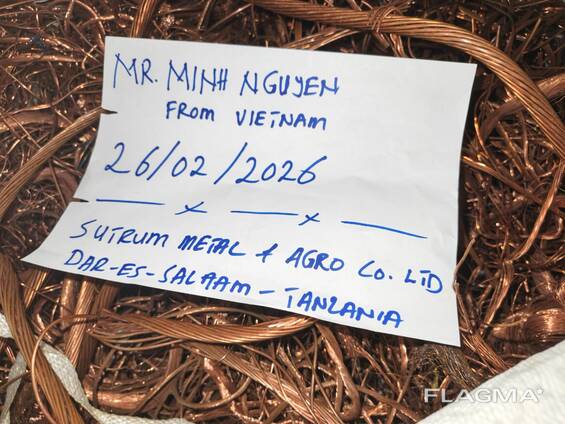 MR. MINH NGUYEN
FROM VIETNAM
26/02/2026
SUTRUM METAL & AGRO CO. LTD
DAR-ES-SALAAM - TANZANIA
FLAGMA